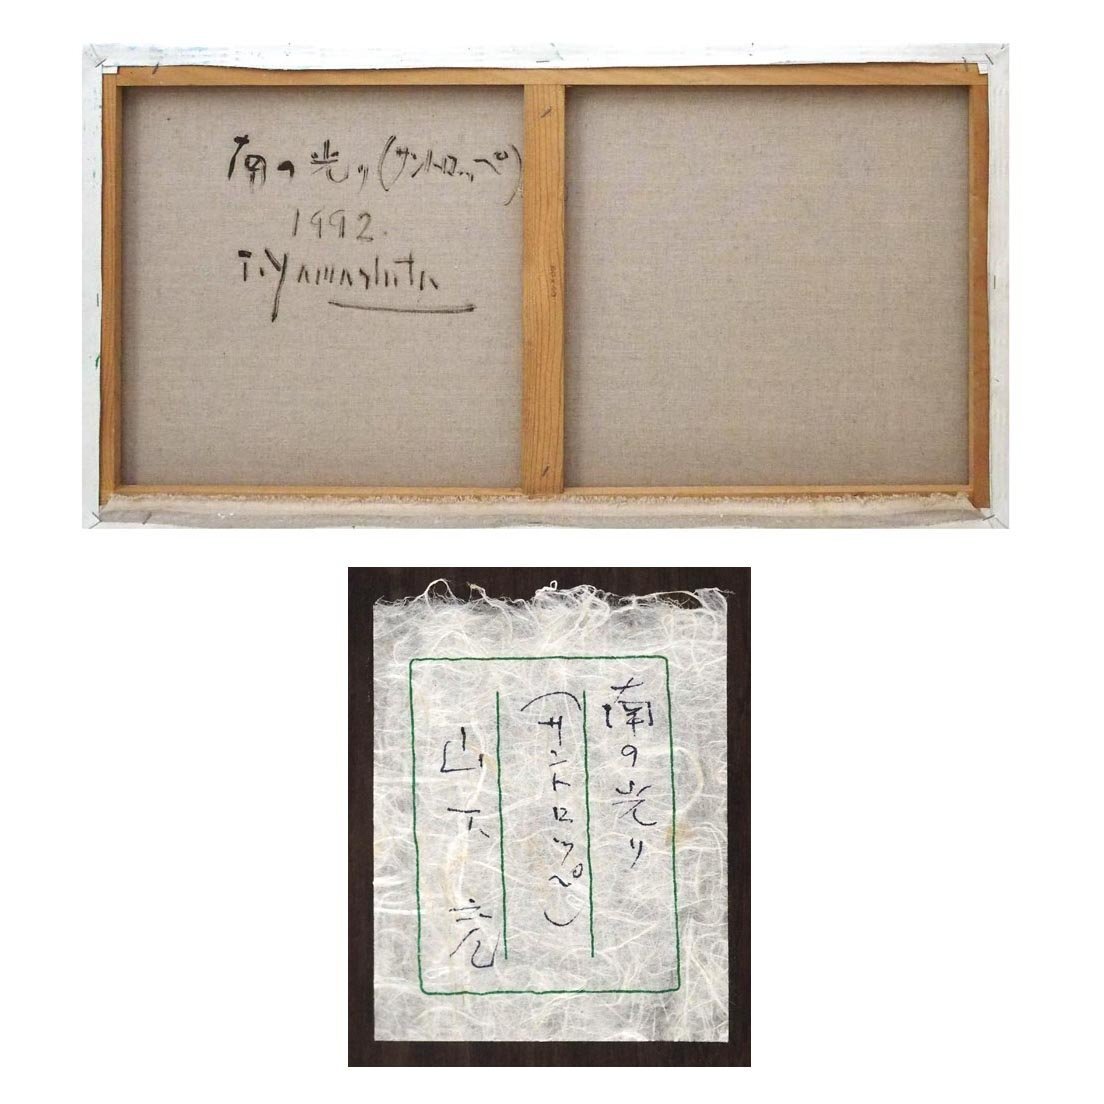 南の光り(サントロッペ)
1992.
T.Yamashita
南の光り
(サントロッペ)
山下充